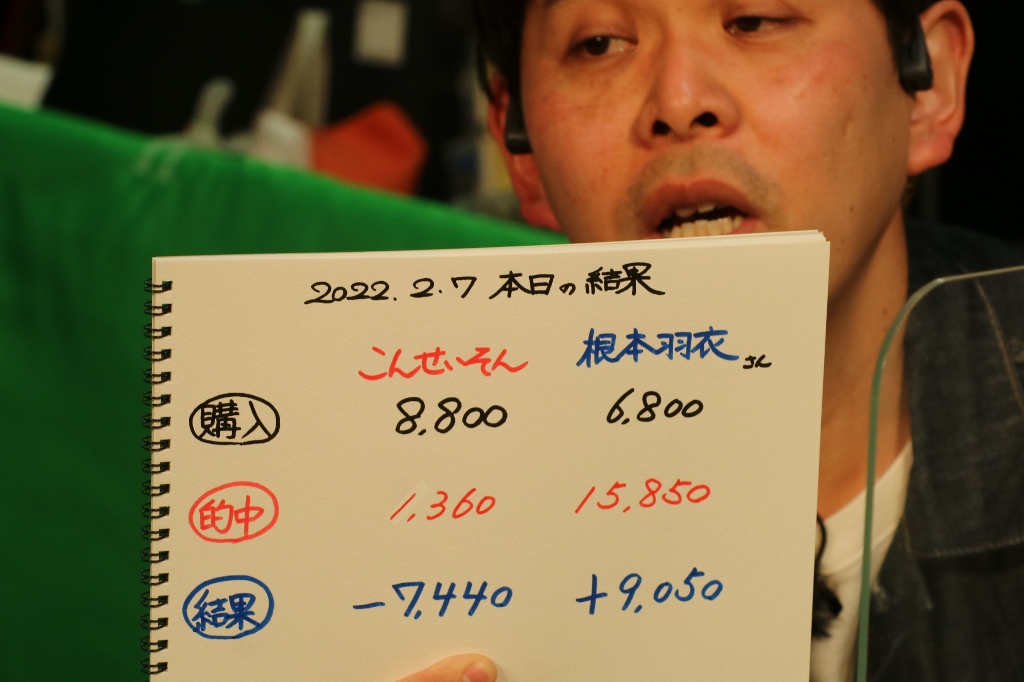 2022.2.7 本日の結果
こんせいそん 根本羽衣さん
購入 8,800 6,800
的中 1,360 15,850
結果 -7,440 +9,050